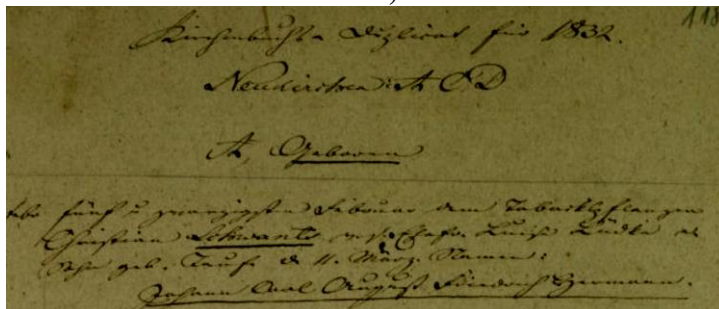 118
Kirchenbuchs-Duplicat für 1832.
Neukirchen
A, Geboren
fünf u zwanzigsten Februar dem Tabackspflanzer
Christian Schwantz Ehefr. Luise Lüdke
Sohn geb. Taufe d 11. März. Namen:
Johann Carl August Friedrich Hermann.